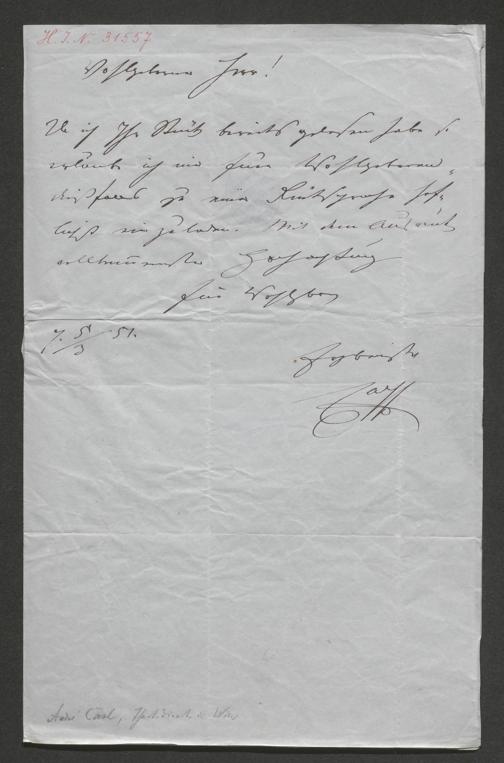 H. I. N. 31557
Wohlgeborner Herr!
Da ich Ihr Stück bereits gelesen habe so
erlaube ich mir Euer Wohlgeboren
dießfalls zu einer Rücksprache höf-
lichst einzuladen. Mit dem Ausdruck
vollkommenster Hochachtung
Euer Wohlgb
7. 5/3 51.
Ergebenster
Carl
André Carl, Theaterdirekt. in Wien